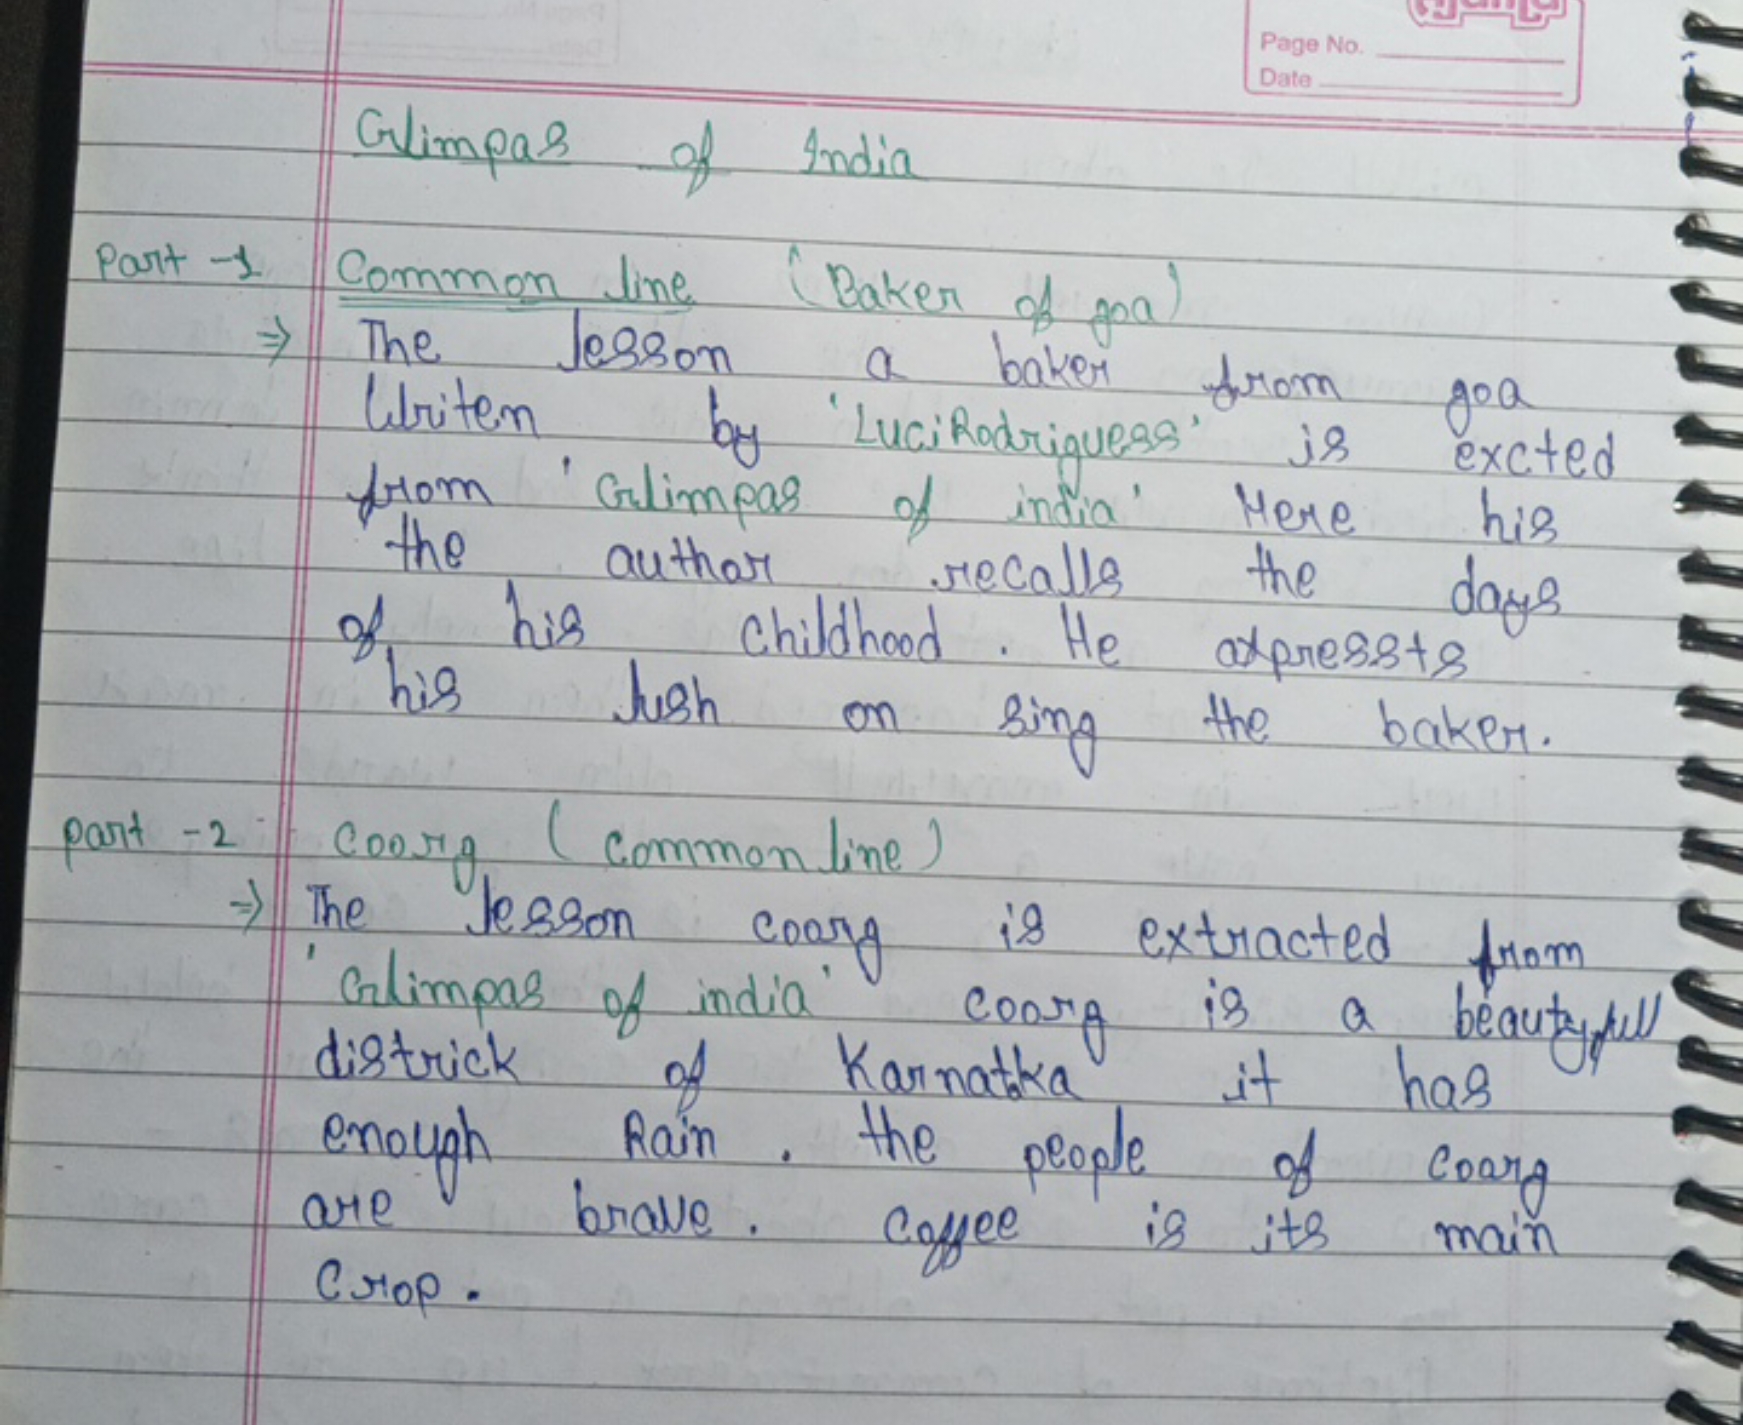 Page No.
Date
Glimpas of India
Part -1 Common line (Baker of goa)
⇒ The lesson a baker from goa
Writen by 'Luci Rodriguess' is excted
from 'Glimpas of india' Here his
the author recalls the days
of his childhood. He expressts
his lush on sing the baker.
part -2 coorg (common line)
⇒ The lesson coorg is extracted from
'Glimpas of india' coorg is a beautyfull
districk of Karnatka it has
enough Rain. the people of coorg
are brave. coffee is its main
crop.